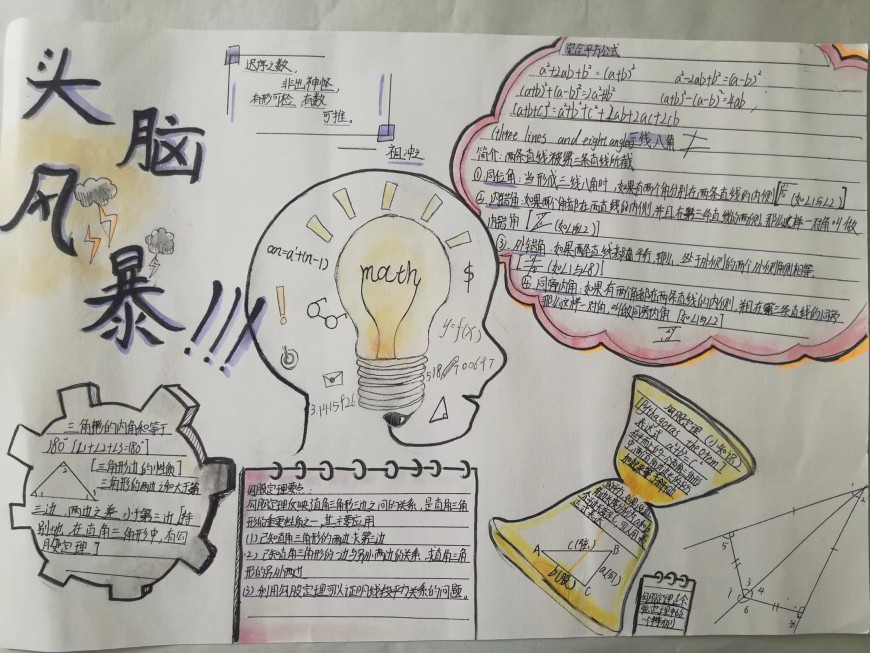 头
脑
风
暴!!!
迟疾之数,
非出神怪,
有形可检,有数
可推。
——祖冲之
完全平方公式
a²+2ab+b²=(a+b)² a²-2ab+b²=(a-b)²
(a+b)²+(a-b)²=2a²+b² (a+b)²-(a-b)²=4ab
(a+b+c)²=a²+b²+c²+2ab+2ac+2cb
(three lines and eight angles)三线八角
简介:两条直线被第三条直线所截
①同位角:当形成三线八角时,如果有两个角分别在两条直线的内侧 (如∠1与∠2)]
②内错角:如果两个角都在两直线的内侧,并且在第三条直线的两侧,那么这样一对角叫做
内错角 [ (如∠1与∠2)]
③外错角:如果两条直线 平行,那么,处于外侧的两个外错角相等。
(如∠1与∠8)]
④同旁内角:如果有两个角都在两条直线的内侧,并且在第三条直线的同旁
那么这样一对角,叫做同旁内角 [如∠1与∠2]
an=a'+(n-1)
math
$
!
y=f(x)
3.1415926
三角形的内角和等于
180°[∠1+∠2+∠3=180°]
[三角形边的性质]
三角形的两边之和大于第
三边,两边之差,小于第三边[特
别地,在直角三角形中,有勾
股定理]
1 2 3
勾股定理要点:
勾股定理反映了直角三角形三边之间的关系,是直角三角
形的重要性质之一,其主要应用
(1)已知直角三角形的两边求第三边
(2)已知直角三角形的一边与另外两边的关系,求直角三角
形的另外两边
(3)利用勾股定理可以证明线段平方关系的问题。
勾股定理
[Pythagoras theorem]
表达式 a²+b²=c²
A c(弦) B
b(股) a(勾)
C
勾股定理是余
弦定理中的
一个特例
1
2
5
3
4
7
6
8